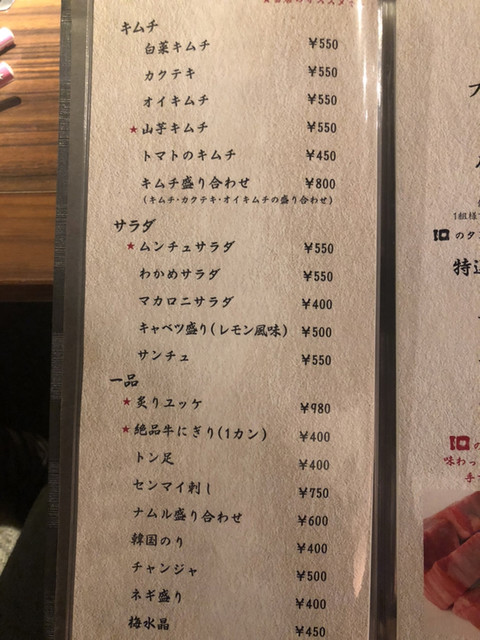 キムチ
白菜キムチ ¥550
カクテキ ¥550
オイキムチ ¥550
★山芋キムチ ¥550
トマトのキムチ ¥450
キムチ盛り合わせ ¥800
(キムチ・カクテキ・オイキムチの盛り合わせ)
サラダ
★ムンチュサラダ ¥550
わかめサラダ ¥550
マカロニサラダ ¥400
キャベツ盛り(レモン風味) ¥500
サンチュ ¥550
一品
★炙りユッケ ¥980
★絶品牛にぎり(1カン) ¥400
トン足 ¥400
センマイ刺し ¥750
ナムル盛り合わせ ¥600
韓国のり ¥400
チャンジャ ¥500
ネギ盛り ¥400
梅水晶 ¥450
1組様
のタ
特選
の
味わっ
手